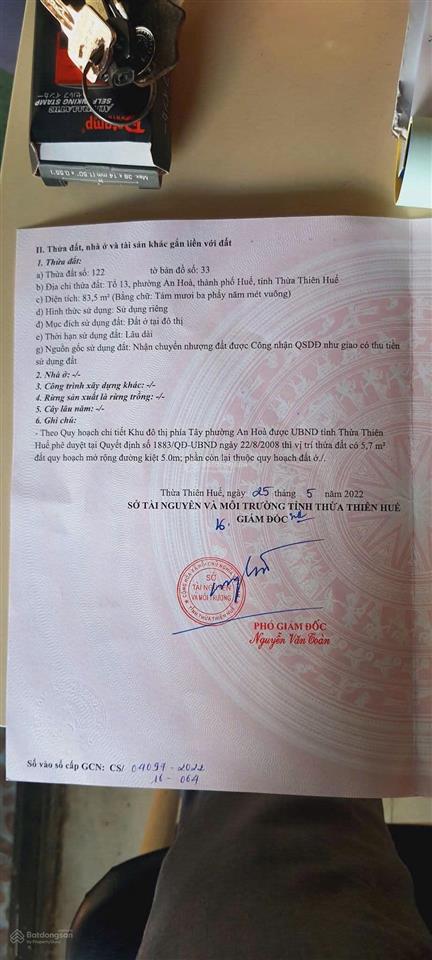 SELF-INKING STAMP
II. Thửa đất, nhà ở và tài sản khác gắn liền với đất
1. Thửa đất:
a) Thửa đất số: 122 tờ bản đồ số: 33
b) Địa chỉ thửa đất: Tổ 13, phường An Hoà, thành phố Huế, tỉnh Thừa Thiên Huế
c) Diện tích: 83,5 m² (Bằng chữ: Tám mươi ba phẩy năm mét vuông)
d) Hình thức sử dụng: Sử dụng riêng
đ) Mục đích sử dụng đất: Đất ở tại đô thị
e) Thời hạn sử dụng đất: Lâu dài
g) Nguồn gốc sử dụng đất: Nhận chuyển nhượng đất được Công nhận QSDĐ như giao có thu tiền
sử dụng đất
2. Nhà ở: -/-
3. Công trình xây dựng khác: -/-
4. Rừng sản xuất là rừng trồng: -/-
5. Cây lâu năm: -/-
6. Ghi chú:
- Theo Quy hoạch chi tiết Khu đô thị phía Tây phường An Hoà được UBND tỉnh Thừa Thiên
Huế phê duyệt tại Quyết định số 1883/QĐ-UBND ngày 22/8/2008 thì vị trí thửa đất có 5,7 m²
đất quy hoạch mở rộng đường kiệt 5.0m; phần còn lại thuộc quy hoạch đất ở./.
Thừa Thiên Huế, ngày 25 tháng 5 năm 2022
SỞ TÀI NGUYÊN VÀ MÔI TRƯỜNG TỈNH THỪA THIÊN HUẾ
GIÁM ĐỐC
SỞ
TÀI NGUYÊN
VÀ MÔI TRƯỜNG
TỈNH THỪA THIÊN HUẾ
PHÓ GIÁM ĐỐC
Nguyễn Văn Toàn
Số vào sổ cấp GCN: CS/ 04097-2022
16-064
Batdongsan
by PropertyGuru